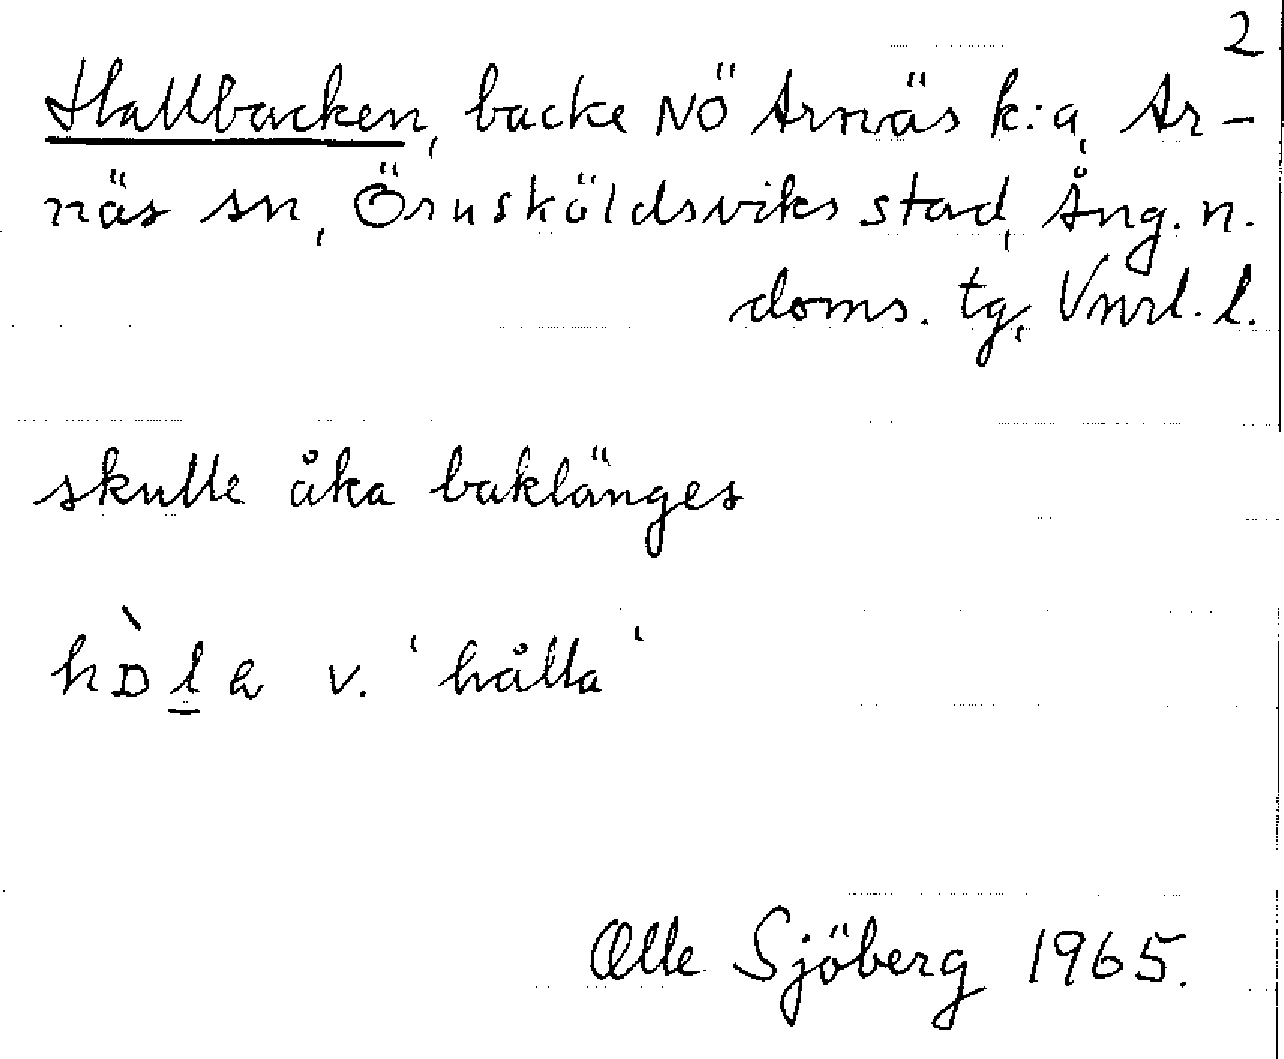 2
Hallbacken, backe NÖ Arnäs k:a, Ar-
näs sn, Örnsköldsviks stad, Ång. n.
doms. tg, Vnrl. l.
skulle åka baklänges
hᴅ̀l̲a v. 'hålla'
Olle Sjöberg 1965.